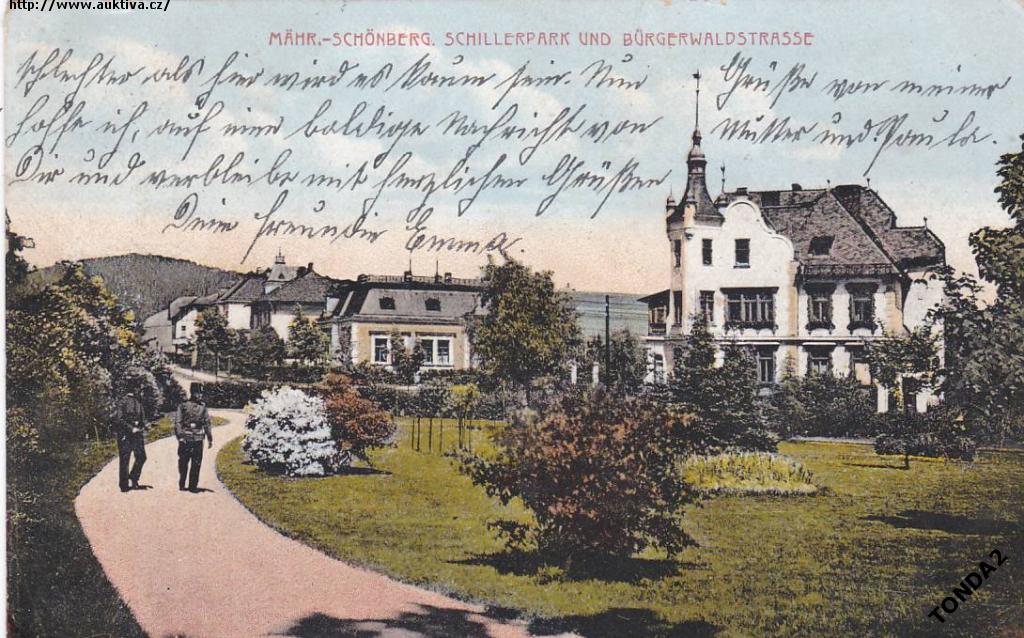 http://www.auktiva.cz/
MÄHR.-SCHÖNBERG. SCHILLERPARK UND BÜRGERWALDSTRASSE
schlechter als hier wird es kaum sein. Nun
hoffe ich, auf eine baldige Nachricht von
Dir und verbleibe mit herzlichen Grüßen
Deine Freundin Emma.
Grüße von meiner
Mutter und Paula.
TONDA2